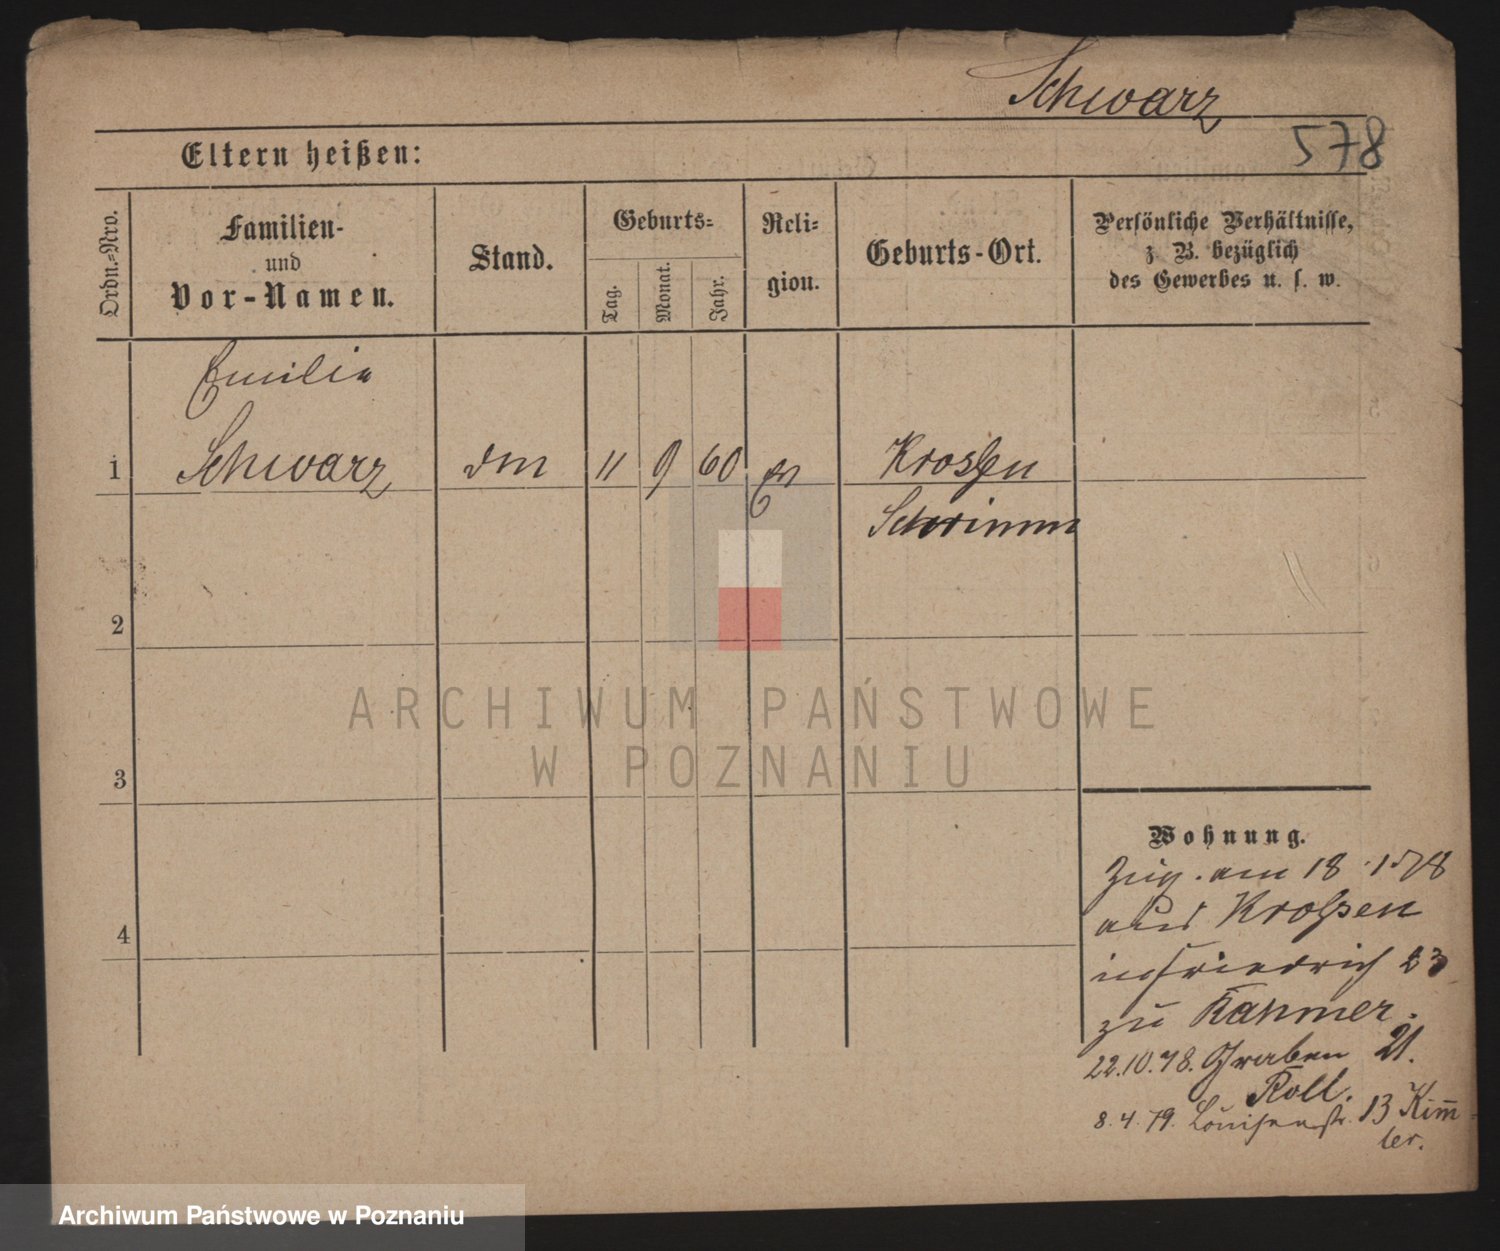 Schwarz
578
Eltern heißen:
Ordn.=Nro.
Familien-
und
Vor-Namen.
Stand.
Geburts=
Tag.
Monat.
Jahr.
Reli=
gion.
Geburts-Ort.
Persönliche Verhältnisse,
z. B. bezüglich
des Gewerbes u. s. w.
Emilie
1 Schwarz 11 9 60 Krosßen
Schrimm
2
3
4
ARCHIWUM PAŃSTWOWE
W POZNANIU
Wohnung.
Zug. am 18 1 78
aus Kroßen
Friedrich 23
zu Kahmer.
22.10.78. Graben 21.
Roll.
8.4.79. Louisenstr. 13 Kim̅
ler.
Archiwum Państwowe w Poznaniu